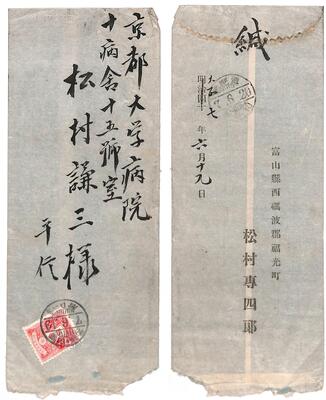 京都大学病院
十病舎十五號室
松村謙三様
平信
緘
明治四十
年六月十九日
富山縣西礪波郡福光町
松村專四郎